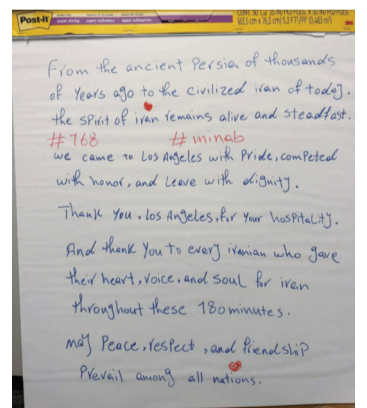 Post-it
From the ancient Persia of thousands
of Years ago to the civilized iran of today.
the spirit of iran remains alive and steadfast.
#768 #minab
we came to Los Angeles with Pride, competed
with honor, and Leave with dignity.
Thank You, Los Angeles, for Your hosPitality.
And thank You to every iranian who gave
their heart, voice, and soul for iran
throughout these 180 minutes.
may Peace, resPect, and friendshiP
Prevail among all nations.